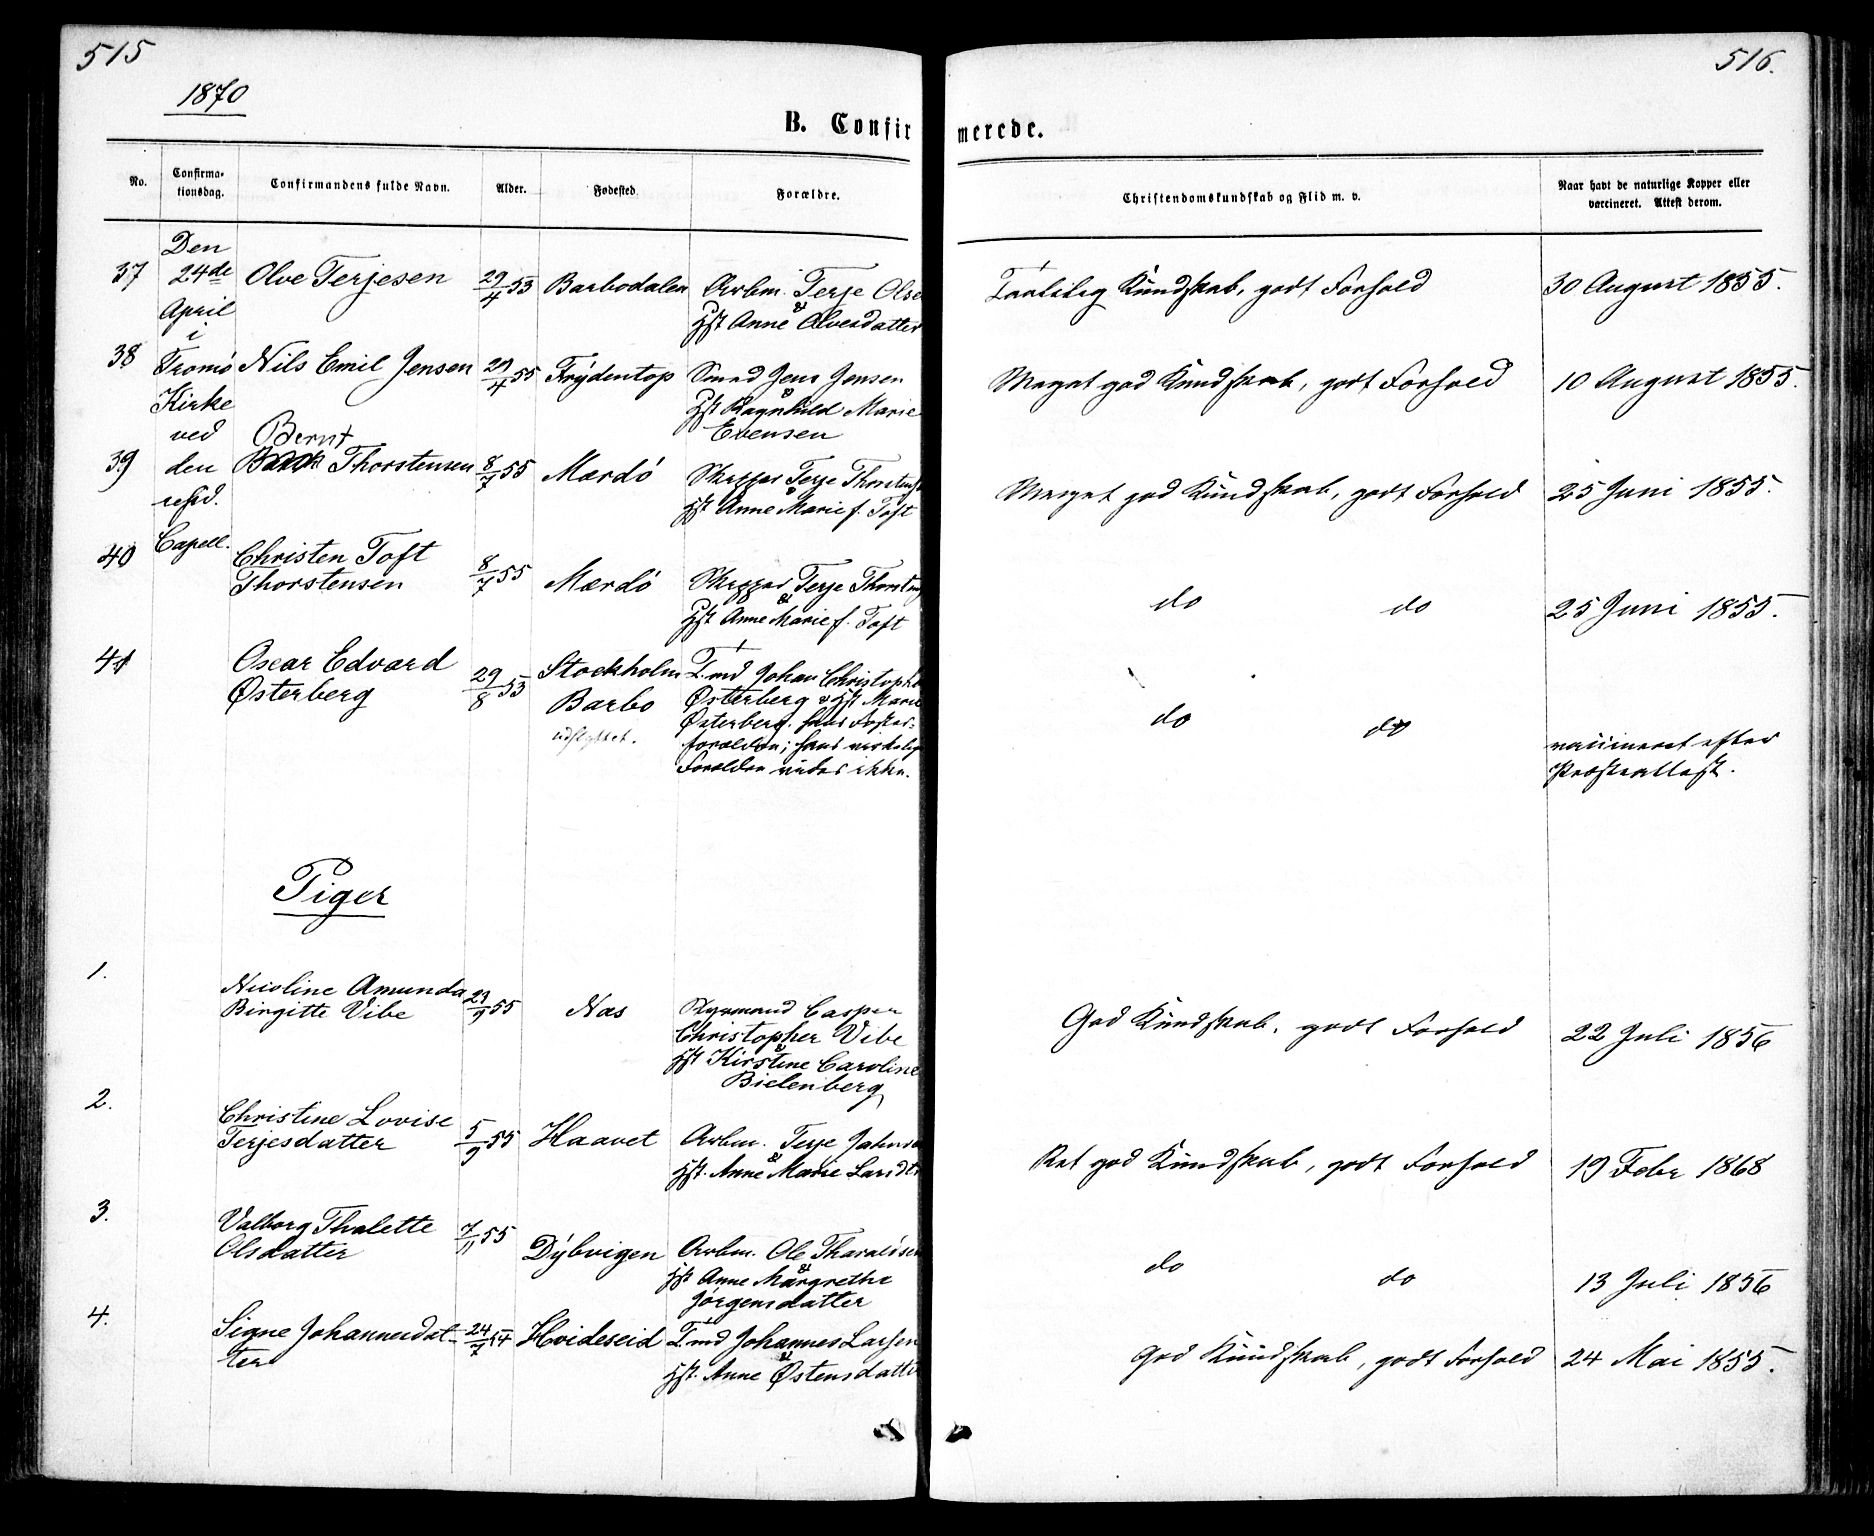 515
516.
1870
B. Confirmerede.
No.
Confirmationsdag.
Confirmandens fulde Navn.
Alder.
Fødested.
Forældre.
Christendomskundskab og Flid m. v.
Naar havt de naturlige Kopper eller
vaccineret. Attest derom.
Den
24de
April
i
Tromø
Kirke
ved
den
resid.
Capell.
37 Olve Terjesen 29/4 53 Barbodalen Arbm. Terje Olse
& Hst Anne Olvesdatter
Taalelig Kundskab, godt Forhold 30 August 1855.
38 Nils Emil Jensen 29/4 55 Frydentop Smed Jens Jensen
& Hst Ragnhild Marie
Evensen
Meget god Kundskab, godt Forhold 10 August 1855.
Bernt
39 Thorstensen 8/7 55 Mærdø Skipper Terje Thorstens
& Hst Anne Marie f. Toft
Meget god Kundskab, godt Forhold 25 Juni 1855.
40 Christen Toft
Thorstensen 8/7 55 Mærdø Skipper Terje Thorstens
& Hst Anne Marie f. Toft
do do 25 Juni 1855.
41 Oscar Edvard
Østerberg 29/8 53 Stockholm
Barbo
udflyttet.
Tmd Johan Christoph
Østerberg & Hst Marie
Østerberg. hans Foster-
forældre; hans virkelige
Forældre vides ikke.
do do
vaccineret efter
Præsteattest.
Piger
1. Nicoline Amunda
Birgitte Vibe 23/9 55 Nas Styrmand Casper
Christopher Vibe
& Hst Kirstine Caroline
Bielenberg
God Kundskab, godt Forhold 22 Juli 1856
2. Christine Lovise
Terjesdatter 5/9 55 Haavet Arbm. Terje Jahns
& Hst. Anne Marie
Ret god Kundskab, godt Forhold 19 Febr 1868
3. Valborg Thalette
Olsdatter 7/11 55 Dybvigen Arbm. Ole Tharaldsen
& Hst Anne Margrethe
Jørgensdatter
do do 13 Juli 1856
4. Signe Johannesdat-
ter 24/7 54 Hvideseid Tmd Johannes Larsen
& Hst. Anne Østensdatte
God Kundskab, godt Forhold 24 Mai 1855.